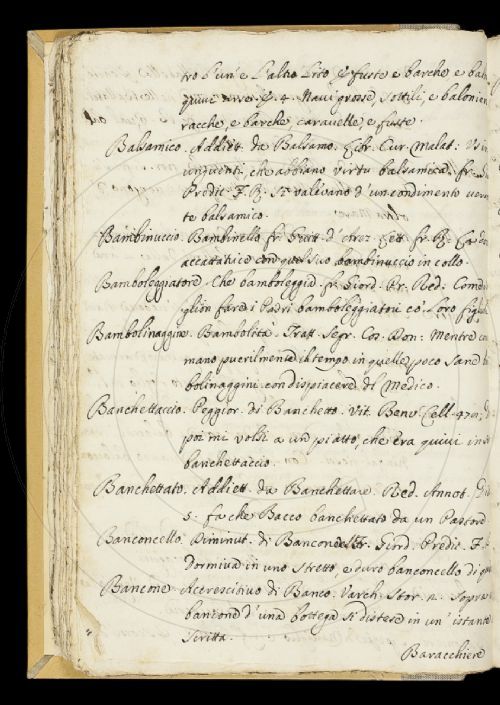 tro l'un' e l'altro Lito, e fuste e barche e
quivi 4. Navi grosse, sottili, e
racche, e barche, caravelle, e fuste.
Balsamico. Addiett. da Balsamo. Libr. Cur. Malat: Us
unguenti, che abbiano virtù balsamica
Predic. F. R. Si valevano d'un condimento
te balsamico.
Bambinuccio. Bambinello fr. Guitt. d'Arez. Lett.
accattatrice con quel suo bambinuccio in collo.
Bamboleggiatore. Che bamboleggia. fr. Giord. Pr. Red: Come
glion fare i Padri bamboleggiatori co' loro figli
Bambolinaggine. Bambolità. Tratt. Segr. Cos. Don: Mentre
mano puerilmente il tempo in quelle poco sane
bolinaggini con dispiacere del Medico.
Banchettaccio. Peggior. di Banchetto. Vit. Benv. Cell.
poi mi volsi a un piatto, che era quivi in
banchettaccio.
Banchettato. Addiett. da Banchettare. Red. Annot.
5. fa che Bacco banchettato da un Pastore
Banconcello. Diminut. di Bancone. Fr. Giord. Predic. F.
Dormiva in uno stretto, e duro banconcello di
Bancone. Accrescitivo di Banco. Varch. Stor. 2. Sopra
bancone d'una bottega si distese in un' istante
scritta.
Baracchiere